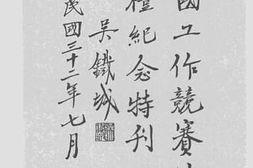 國工作競賽
禮紀念特刊
吳鐵城
民國三十二年七月